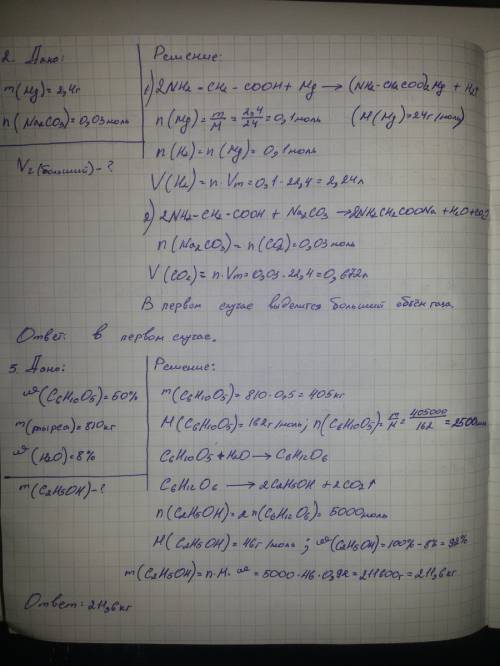 2. Дано:
m(Mg)=2,4г
n(Na2CO3)=0,03моль
V2(больший)-?
Решение:
1) 2NH2-CH2-COOH + Mg → (NH2-CH2COO)2Mg + H2↑
n(Mg)=m/M=2,4/24=0,1моль (M(Mg)=24г/моль)
n(H2)=n(Mg)=0,1моль
V(H2)=n·Vm=0,1·22,4=2,24л
2) 2NH2-CH2-COOH + Na2CO3 → 2NH2CH2COONa + H2O + CO2↑
n(Na2CO3)=n(CO2)=0,03моль
V(CO2)=n·Vm=0,03·22,4=0,672л
В первом случае выделится больший объём газа.
Ответ: в первом случае.
3. Дано:
ω(C6H10O5)=50%
m(сырья)=810кг
ω(H2O)=8%
m(C2H5OH)-?
Решение:
m(C6H10O5)=810·0,5=405кг
M(C6H10O5)=162г/моль; n(C6H10O5)=m/M=405000/162=2500моль
C6H10O5+H2O → C6H12O6
C6H12O6 → 2C2H5OH + 2CO2↑
n(C2H5OH)=2n(C6H12O6)=5000моль
M(C2H5OH)=46г/моль; ω(C2H5OH)=100%-8%=92%
m(C2H5OH)=n·M·ω=5000·46·0,92=211600г=211,6кг
Ответ: 211,6кг